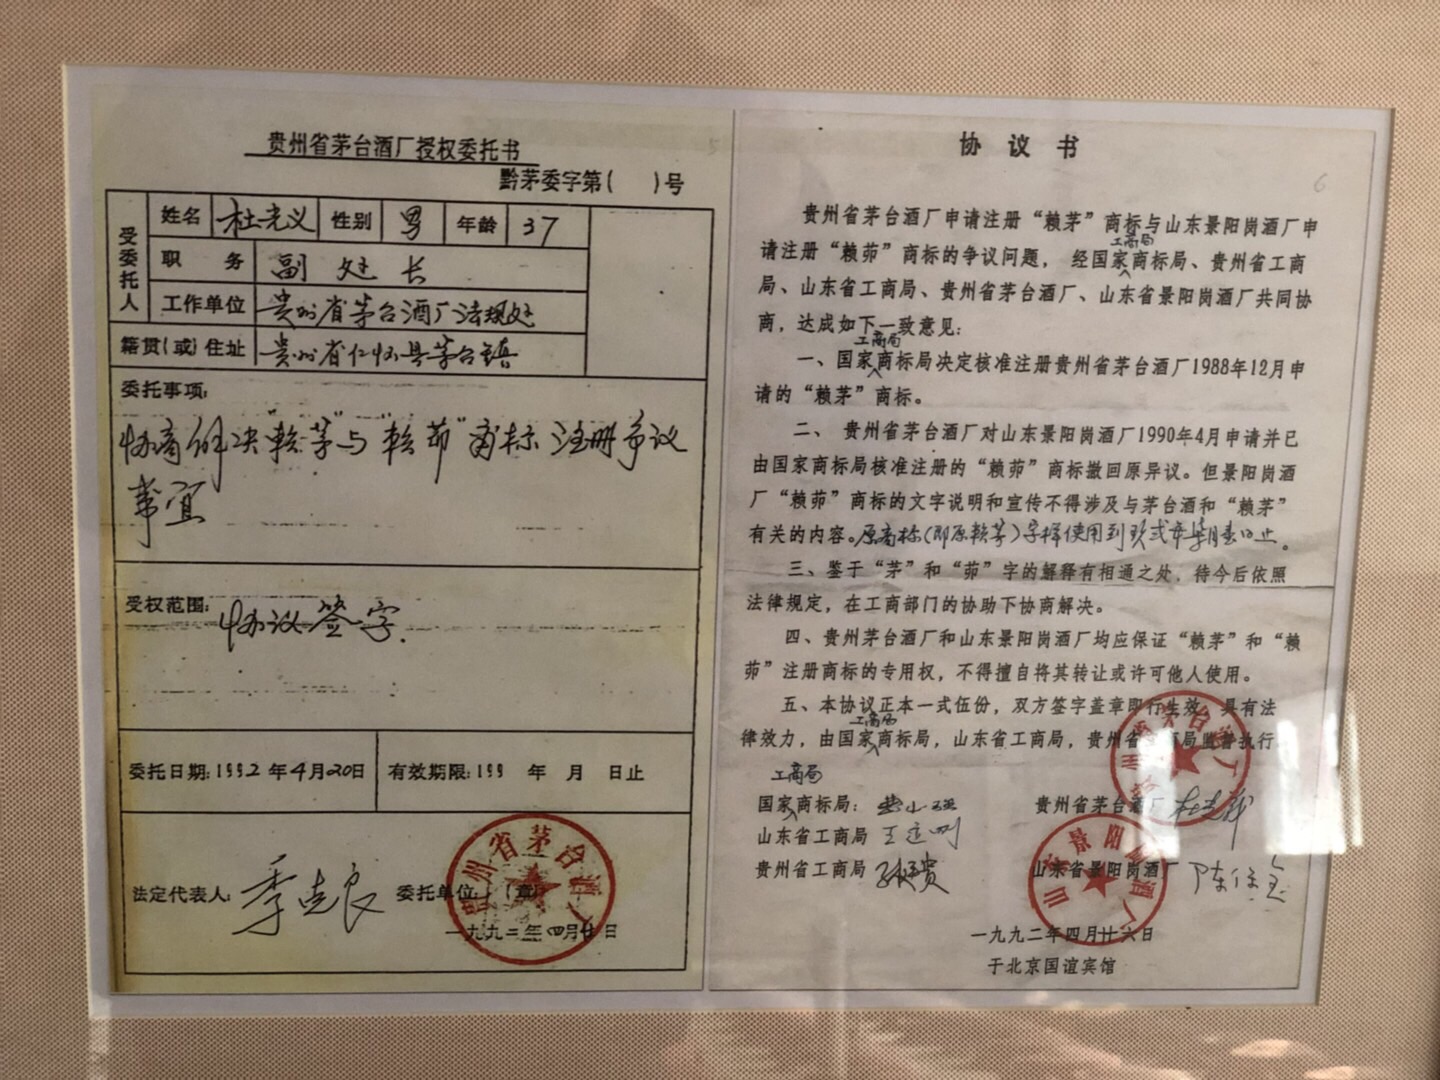 贵州省茅台酒厂授权委托书
黔茅委字第( )号
受委托人
姓名 杜光义 性别 男 年龄 37
职务 副处长
工作单位 贵州省茅台酒厂法规处
籍贯(或)住址 贵州省仁怀县茅台镇
委托事项:
协商解决"赖茅"与"赖茆"商标注册争议
事宜
受权范围: 协议签字.
委托日期:1992年4月20日 有效期限:199 年 月 日止
法定代表人: 季克良 委托单位: (章)
贵州省茅台酒厂
一九九二年四月廿日
协议书
6
贵州省茅台酒厂申请注册“赖茅”商标与山东景阳岗酒厂申
请注册“赖茆”商标的争议问题，经国家工商局商标局、贵州省工商
局、山东省工商局、贵州省茅台酒厂、山东省景阳岗酒厂共同协
商，达成如下一致意见:
一、国家工商局商标局决定核准注册贵州省茅台酒厂1988年12月申
请的“赖茅”商标。
二、贵州省茅台酒厂对山东景阳岗酒厂1990年4月申请并已
由国家商标局核准注册的“赖茆”商标撤回原异议。但景阳岗酒
厂“赖茆”商标的文字说明和宣传不得涉及与茅台酒和“赖茅”
有关的内容。原商标(即原赖茅)字样使用到玖贰年柒月壹日止。
三、鉴于“茅”和“茆”字的解释有相通之处，待今后依照
法律规定，在工商部门的协助下协商解决。
四、贵州茅台酒厂和山东景阳岗酒厂均应保证“赖茅”和“赖
茆”注册商标的专用权，不得擅自将其转让或许可他人使用。
五、本协议正本一式伍份，双方签字盖章即行生效，具有法
律效力，由国家工商局商标局，山东省工商局，贵州省工商局监督执行
国家工商局商标局: 贵州省茅台酒厂
山东省工商局
贵州省工商局 山东省景阳岗酒厂
贵州省茅台酒厂
山东景阳岗酒厂
一九九二年四月廿六日
于北京国谊宾馆